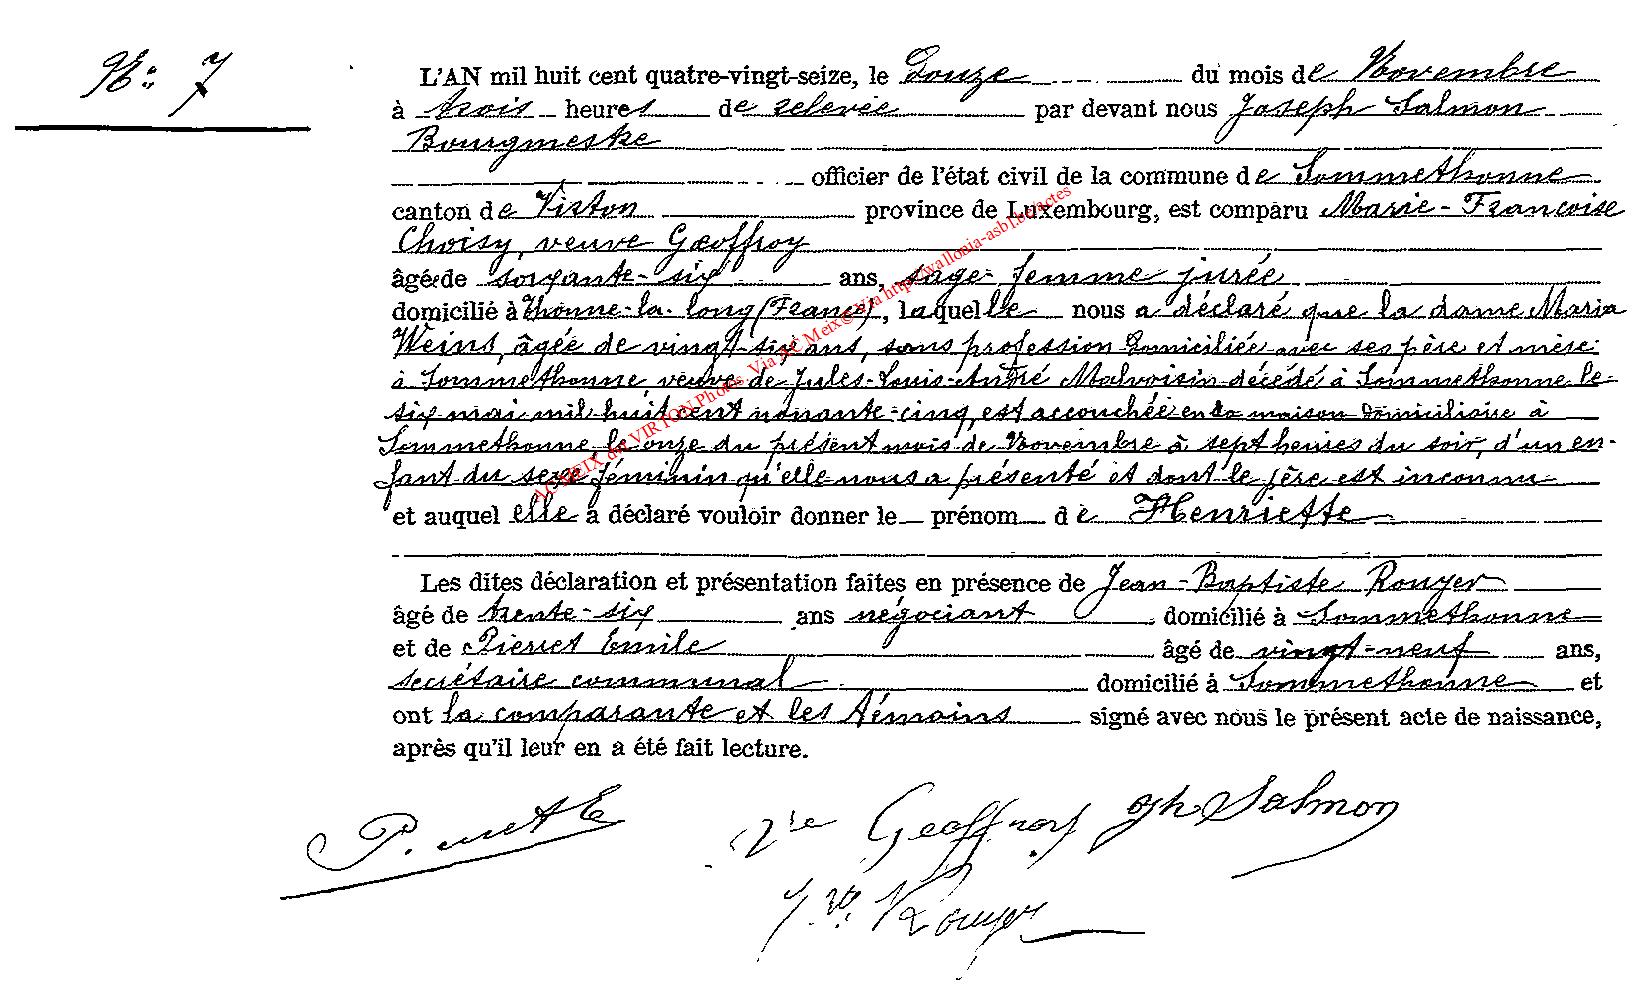 No: 7
L'AN mil huit cent quatre-vingt-seize, le Douze du mois de Novembre
à trois heures de relevée par devant nous Joseph Salmon
Bourgmestre
officier de l'état civil de la commune de Sommethonne
canton de Virton province de Luxembourg, est comparu Marie-Francoise
Choisy, veuve Geoffroy
âgée de soixante-six ans, sage-femme jurée
domicilié à Thonne-la-long (France), laquelle nous a déclaré que la dame Maria
Weins, âgée de vingt-six ans, sans profession Domiciliée avec ses père et mère
à Sommethonne, veuve de Jules-Louis-André Malvoisin décédé à Sommethonne le
six mai mil huit cent nonante-cinq, est accouchée en la maison domiciliaire à
Sommethonne, le onze du présent mois de Novembre à sept heures du soir, d'un en-
fant du sexe féminin qu'elle nous a présenté et dont le père est inconnu
et auquel elle a déclaré vouloir donner le prénom de Henriette
Les dites déclaration et présentation faites en présence de Jean-Baptiste Rouyer
âgé de trente-six ans négociant domicilié à Sommethonne
et de Pierret Emile âgé de vingt-neuf ans,
secrétaire communal domicilié à Sommethonne et
ont la comparante et les témoins signé avec nous le présent acte de naissance,
après qu'il leur en a été fait lecture.
Vve Geoffroy Jph Salmon
Rouyer